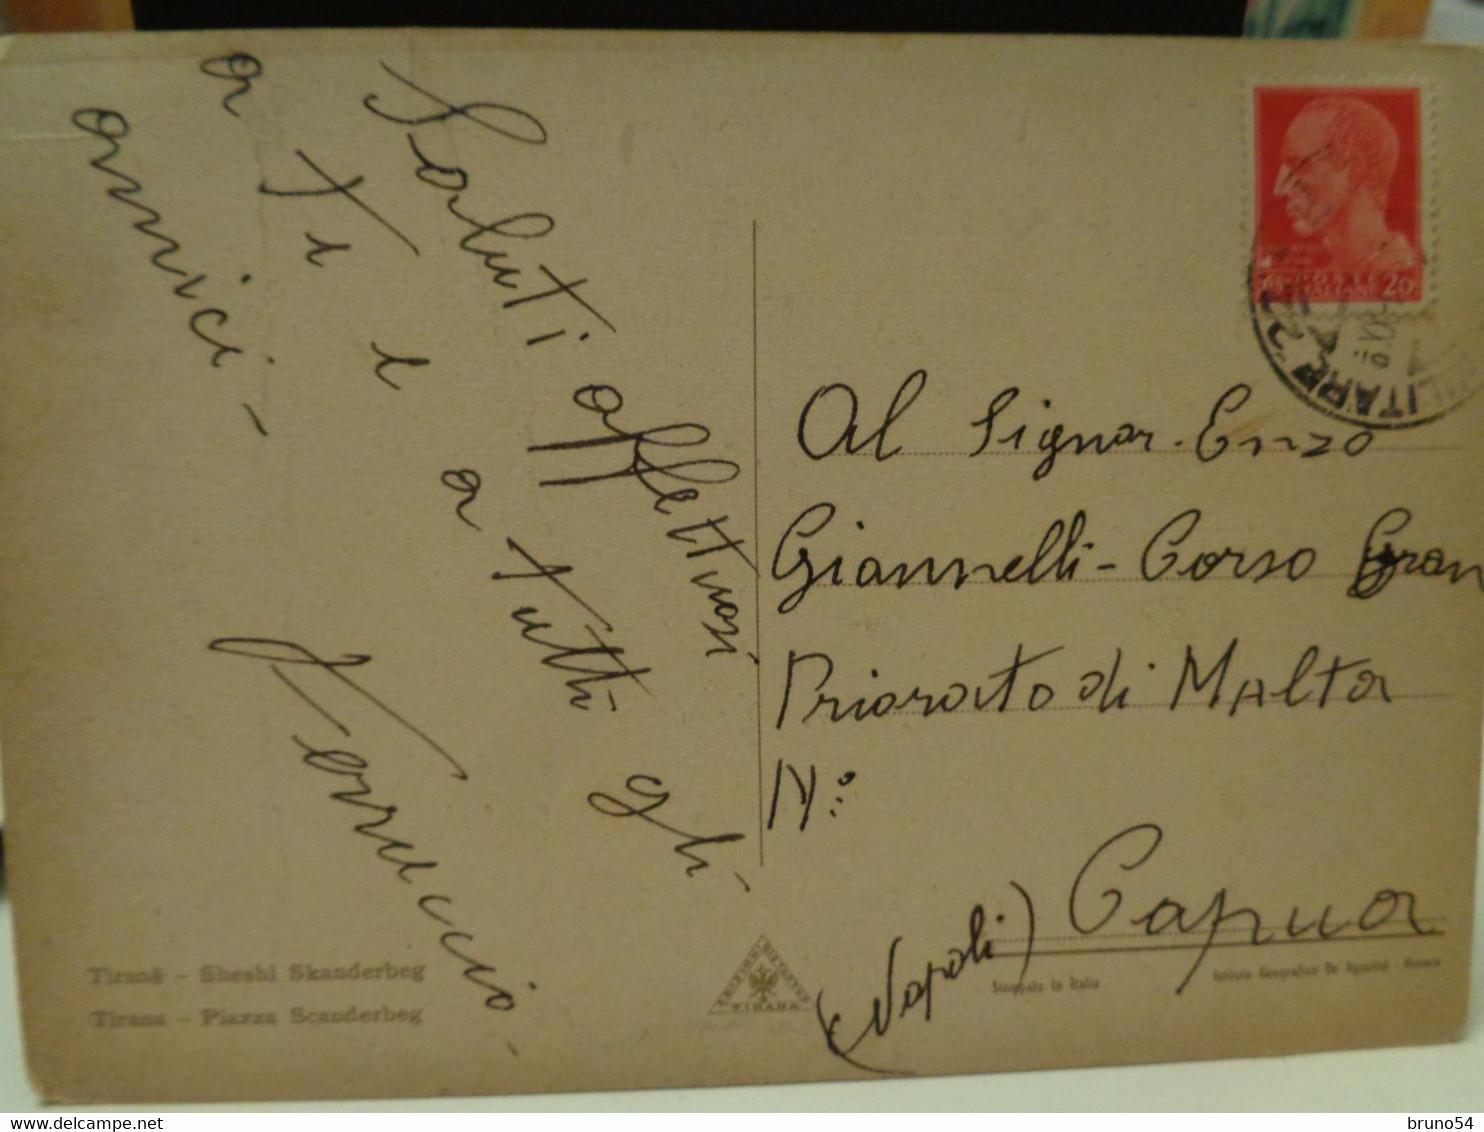 Saluti affettuosi
a Te e a tutti gli
amici -
Ferruccio
Al Signor Enzo
Giannelli - Corso Gran
Priorato di Malta
N°
Capua
(Napoli)
Tiranë - Sheshi Skanderbeg
Tirana - Piazza Scanderbeg
TIRANA
Stampato in Italia
Istituto Geografico De Agostini - Novara
POSTE
ITALIANE
20
bruno54